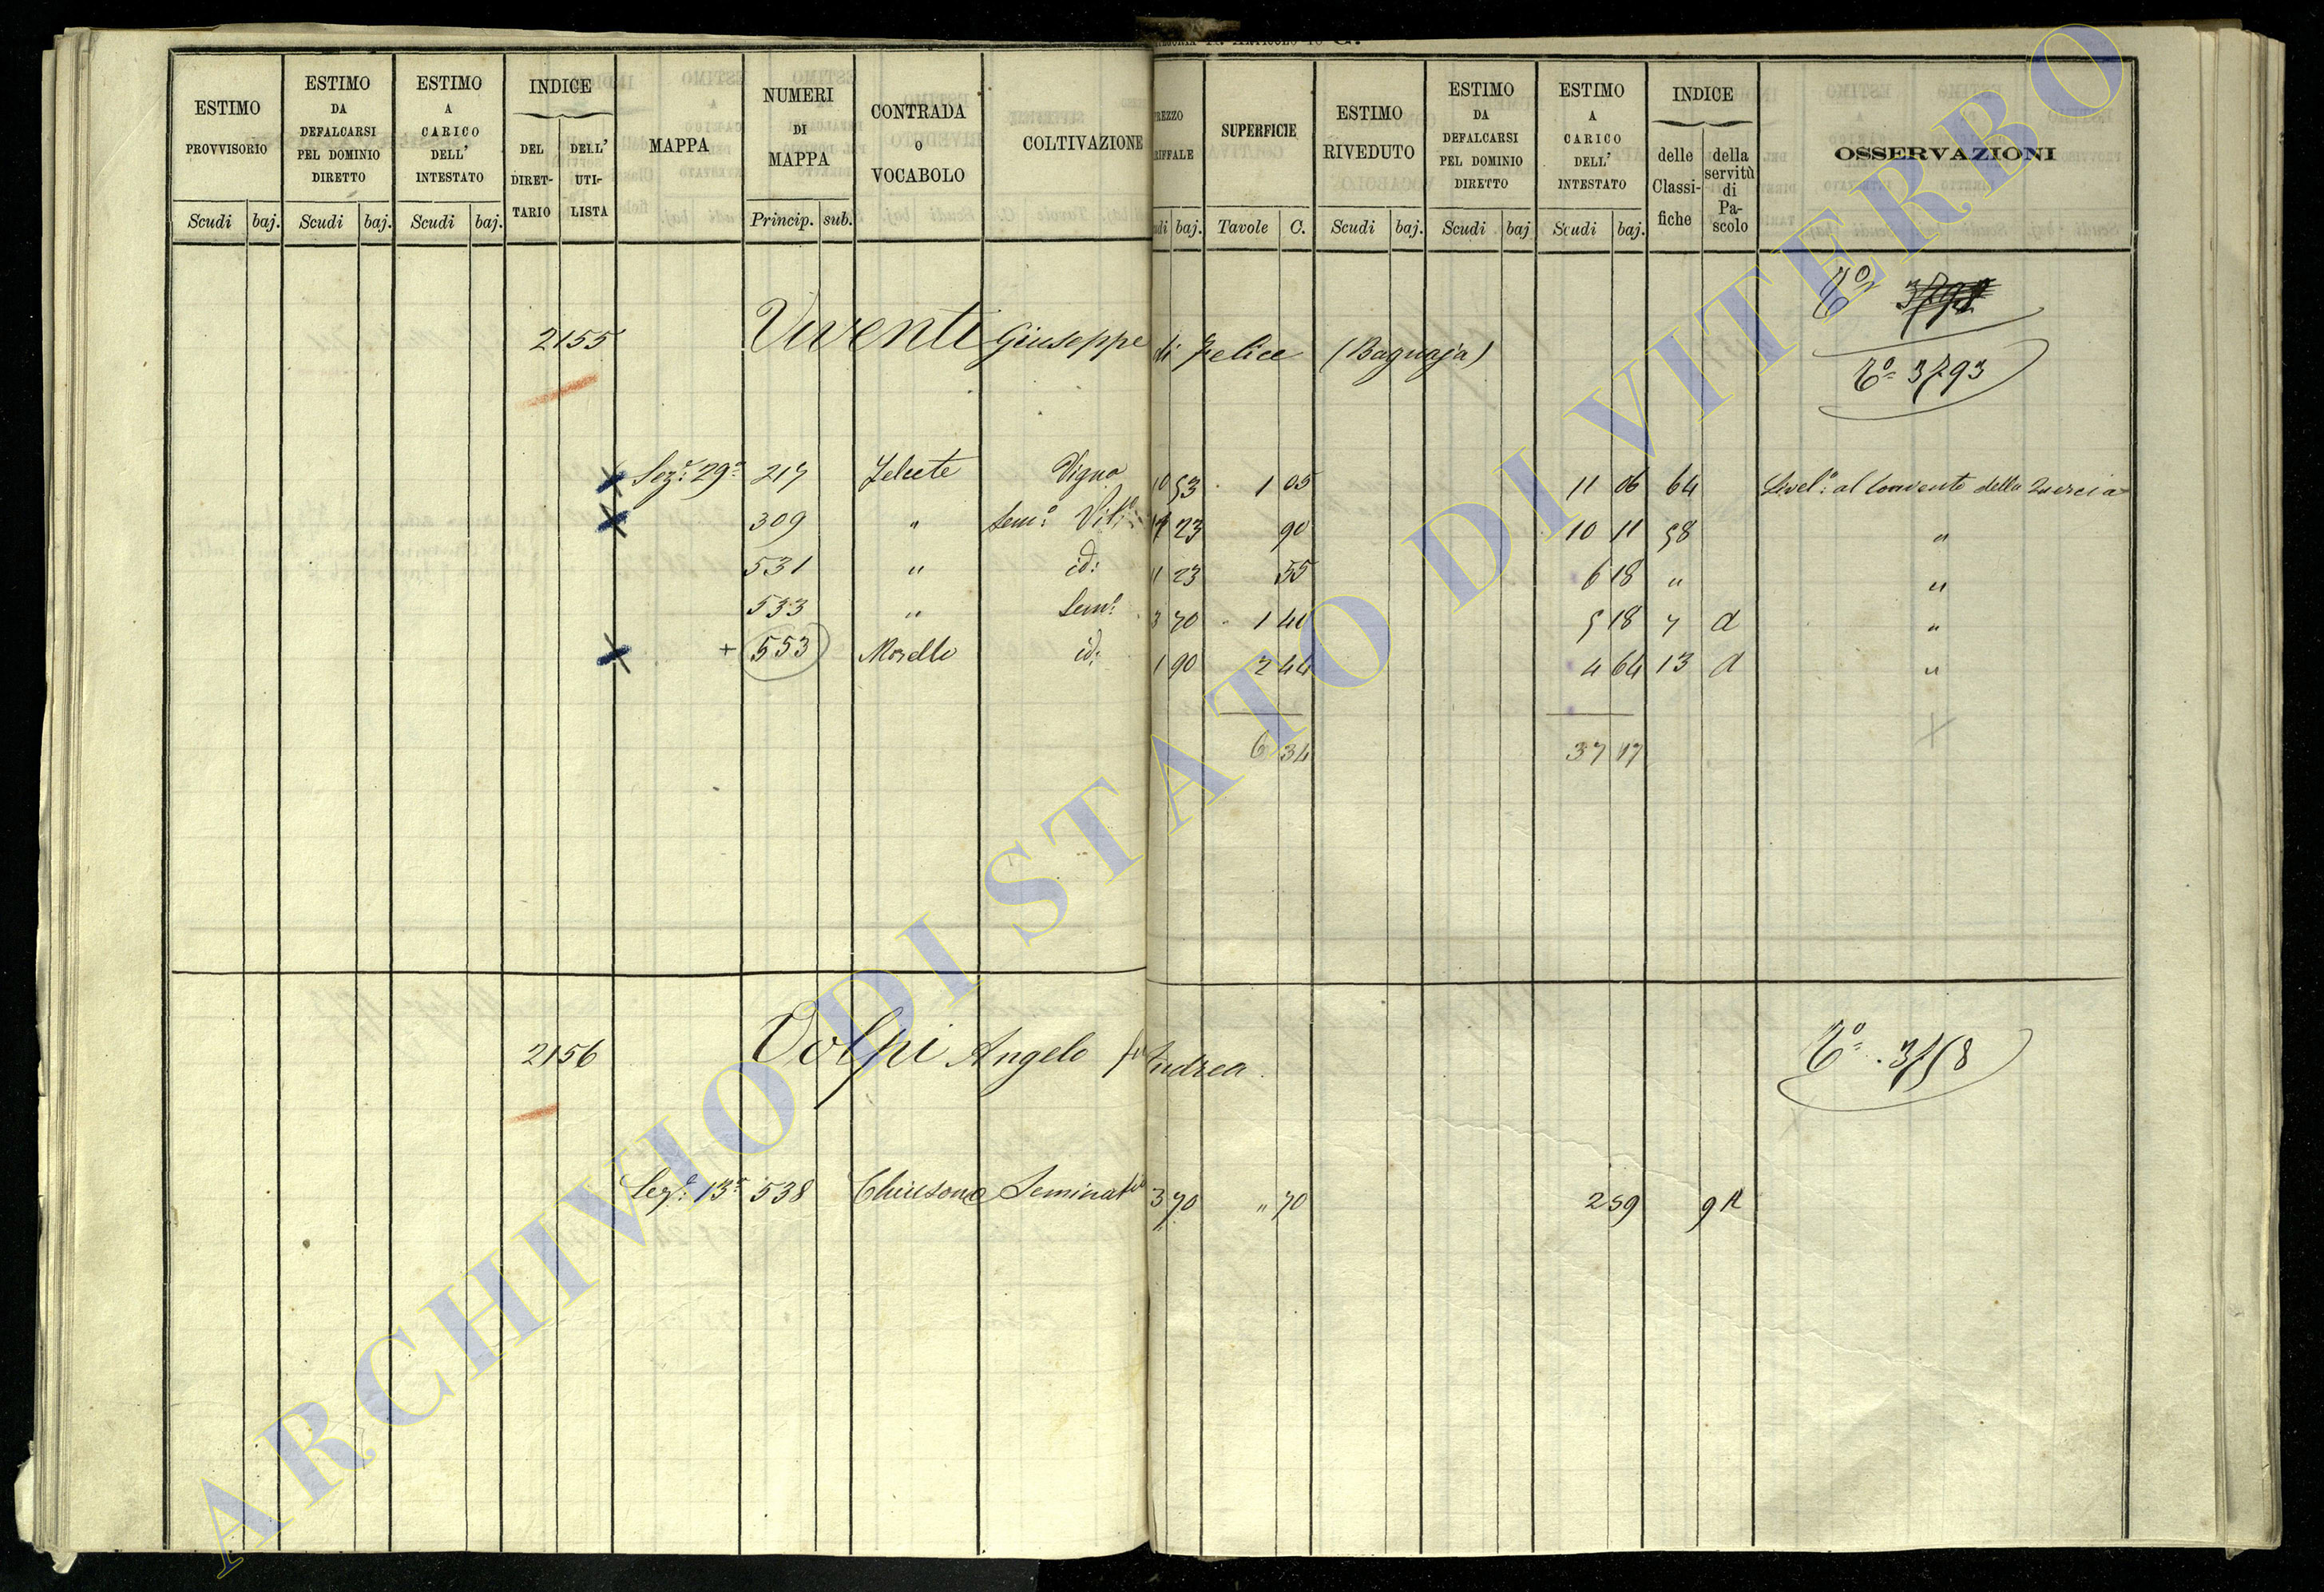 ESTIMO PROVVISORIO Scudi baj.
ESTIMO DA DEFALCARSI PEL DOMINIO DIRETTO Scudi baj.
ESTIMO A CARICO DELL' INTESTATO Scudi baj.
INDICE DEL DIRET-TARIO DELL' UTI-LISTA
MAPPA
NUMERI DI MAPPA Princip. sub.
CONTRADA O VOCABOLO
COLTIVAZIONE
REZZO RIFFALE di baj.
SUPERFICIE Tavole C.
ESTIMO RIVEDUTO Scudi baj.
ESTIMO DA DEFALCARSI PEL DOMINIO DIRETTO Scudi baj
ESTIMO A CARICO DELL' INTESTATO Scudi baj.
INDICE delle Classi-fiche della servitù di Pa-scolo
OSSERVAZIONI
2155 Viventi Giuseppe di Felice (Bagnaja)
To 3793
Sez.e 29a 217 Vigna 10 53 1 05 11 06 64 Livel.o al Convento della Quercia
309 " Sem.o Vit.o 23 90 10 11 58 "
531 " id: 11 23 55 6 18 " "
533 " Sem.o 3 70 1 40 5 18 7 d "
+ 553 Morello id: 1 90 2 44 4 64 13 d "
6 34 37 17
2156 Volpi Angelo fu Andrea To 3758
Sez.e 13a 538 Chiusone Seminativo 3 70 " 70 2 59 9 A
ARCHIVIO DI STATO DI VITERBO